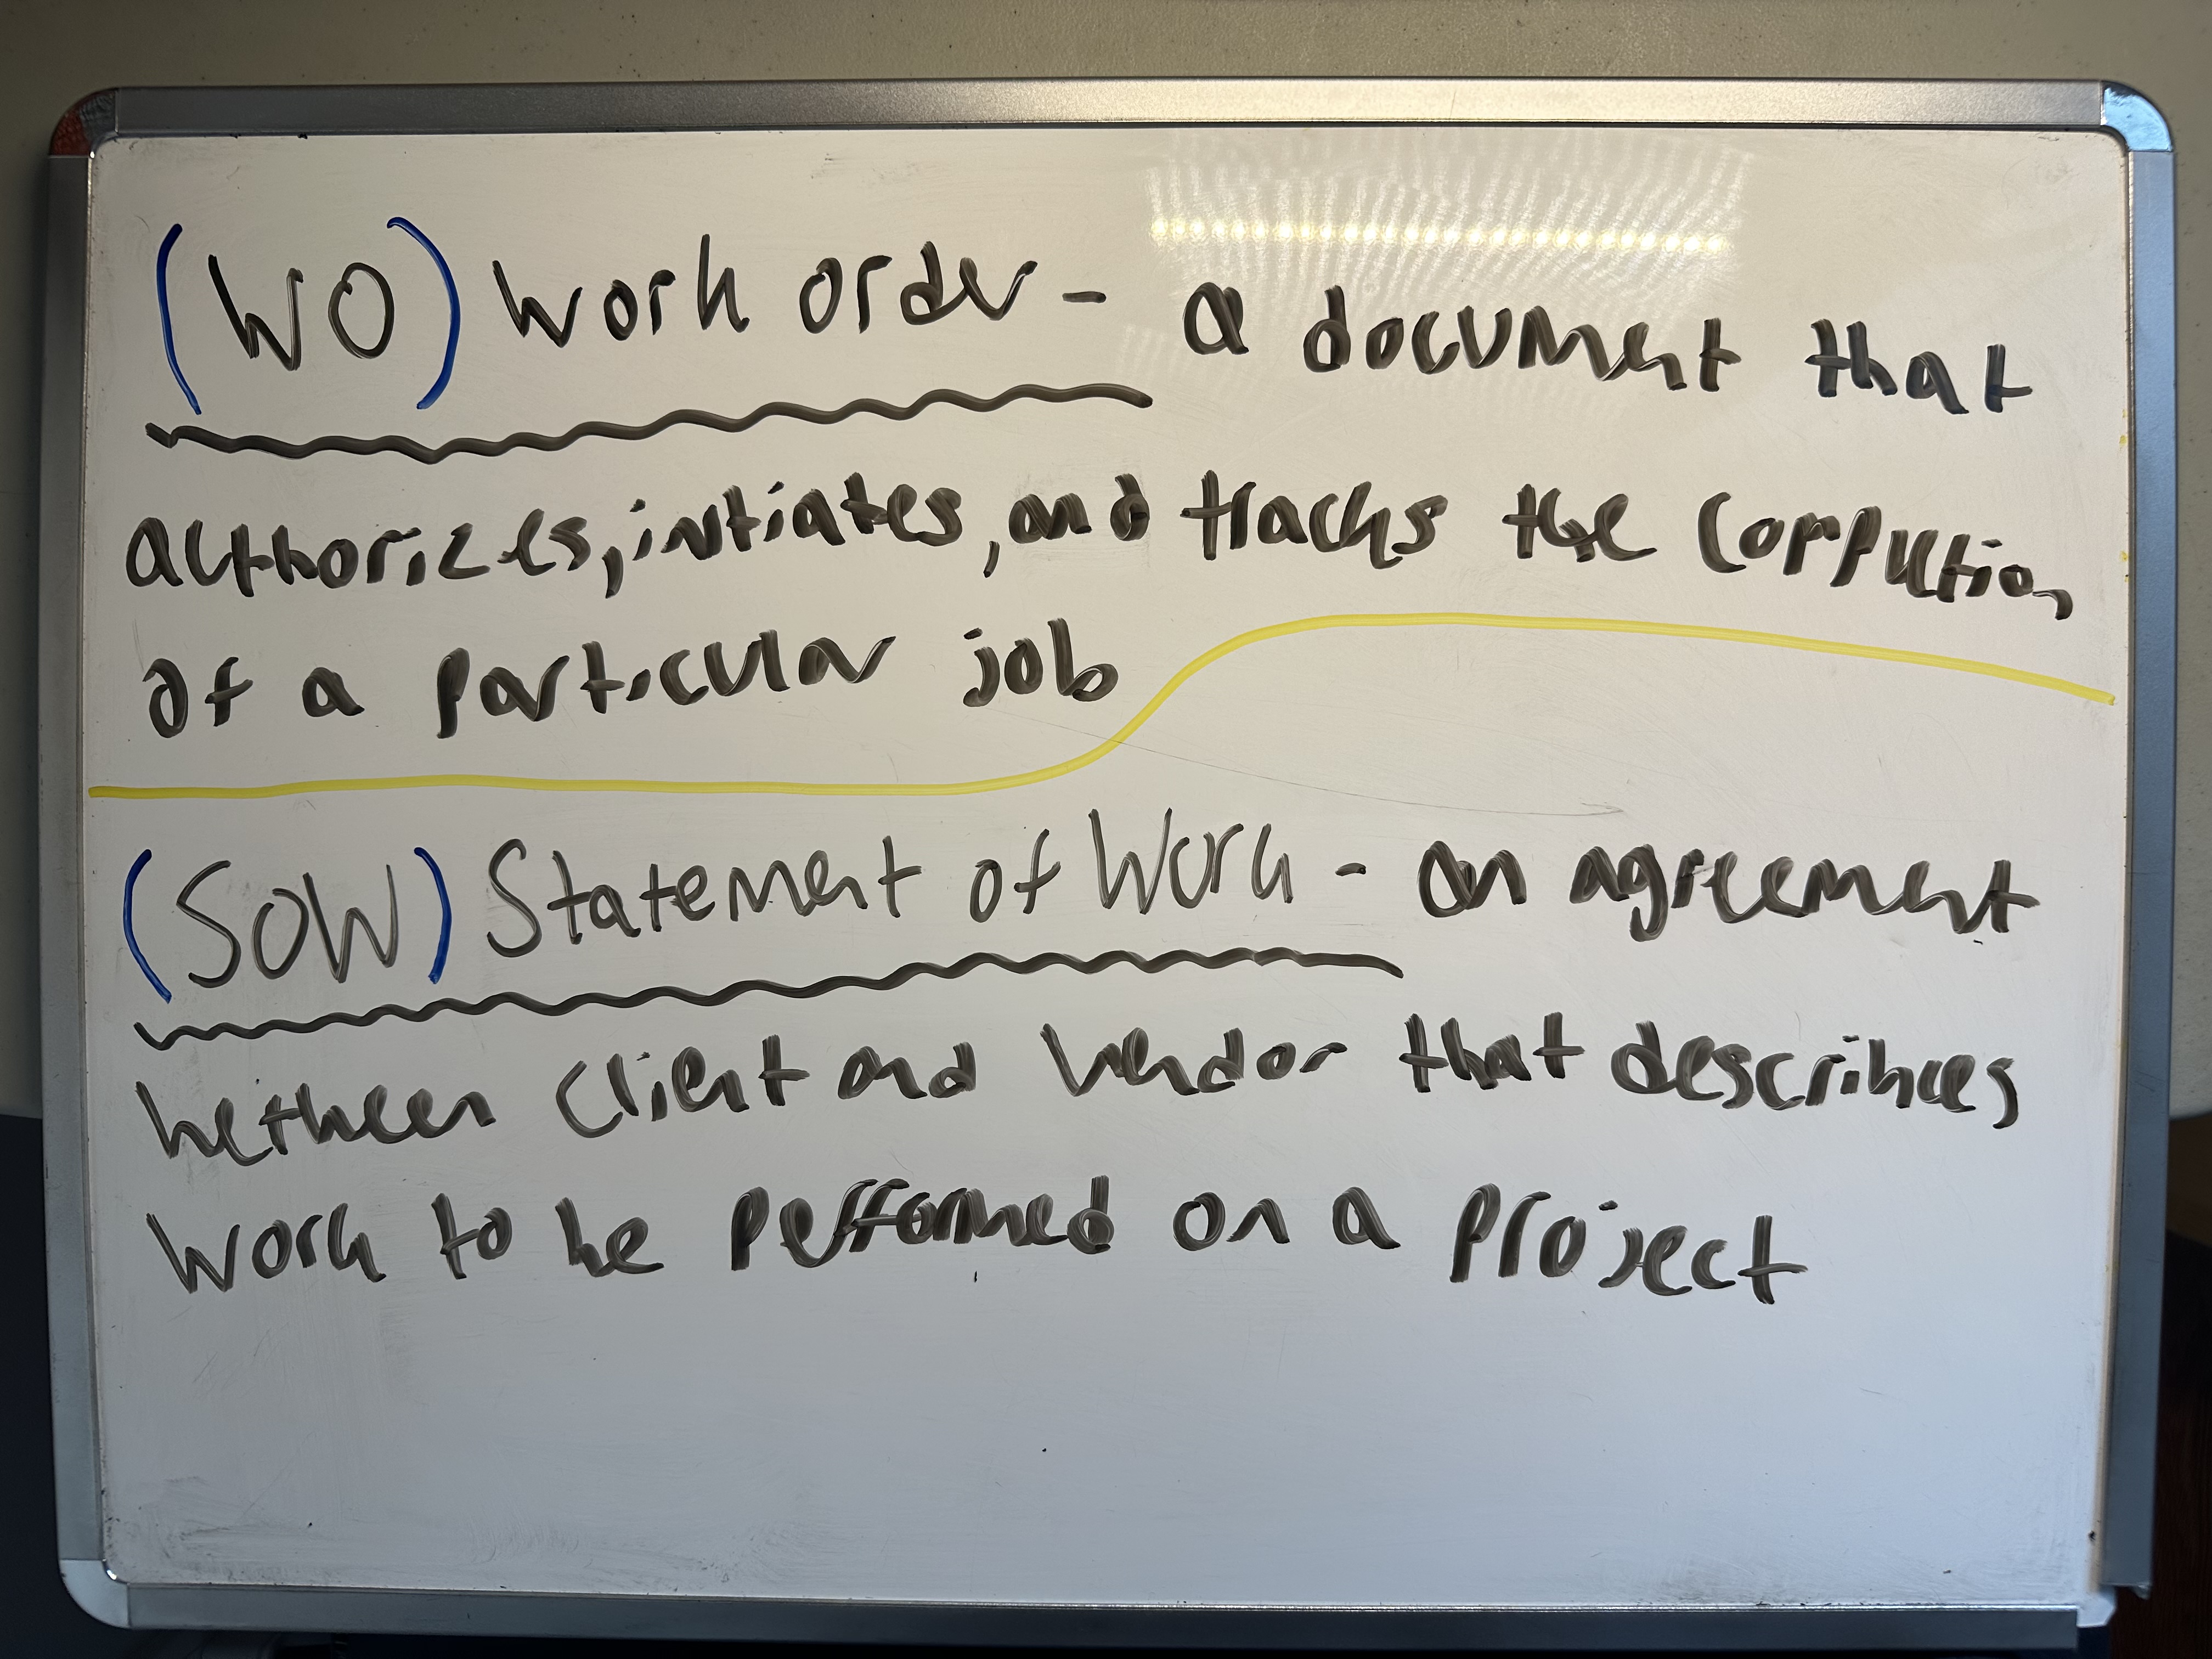 (WO) Work order - a document that
authorizes, intiates, and tracks the compution
of a particular job
(SOW) Statement of Work - an agreement
between Client and Vendor that describes
Work to be performed on a project